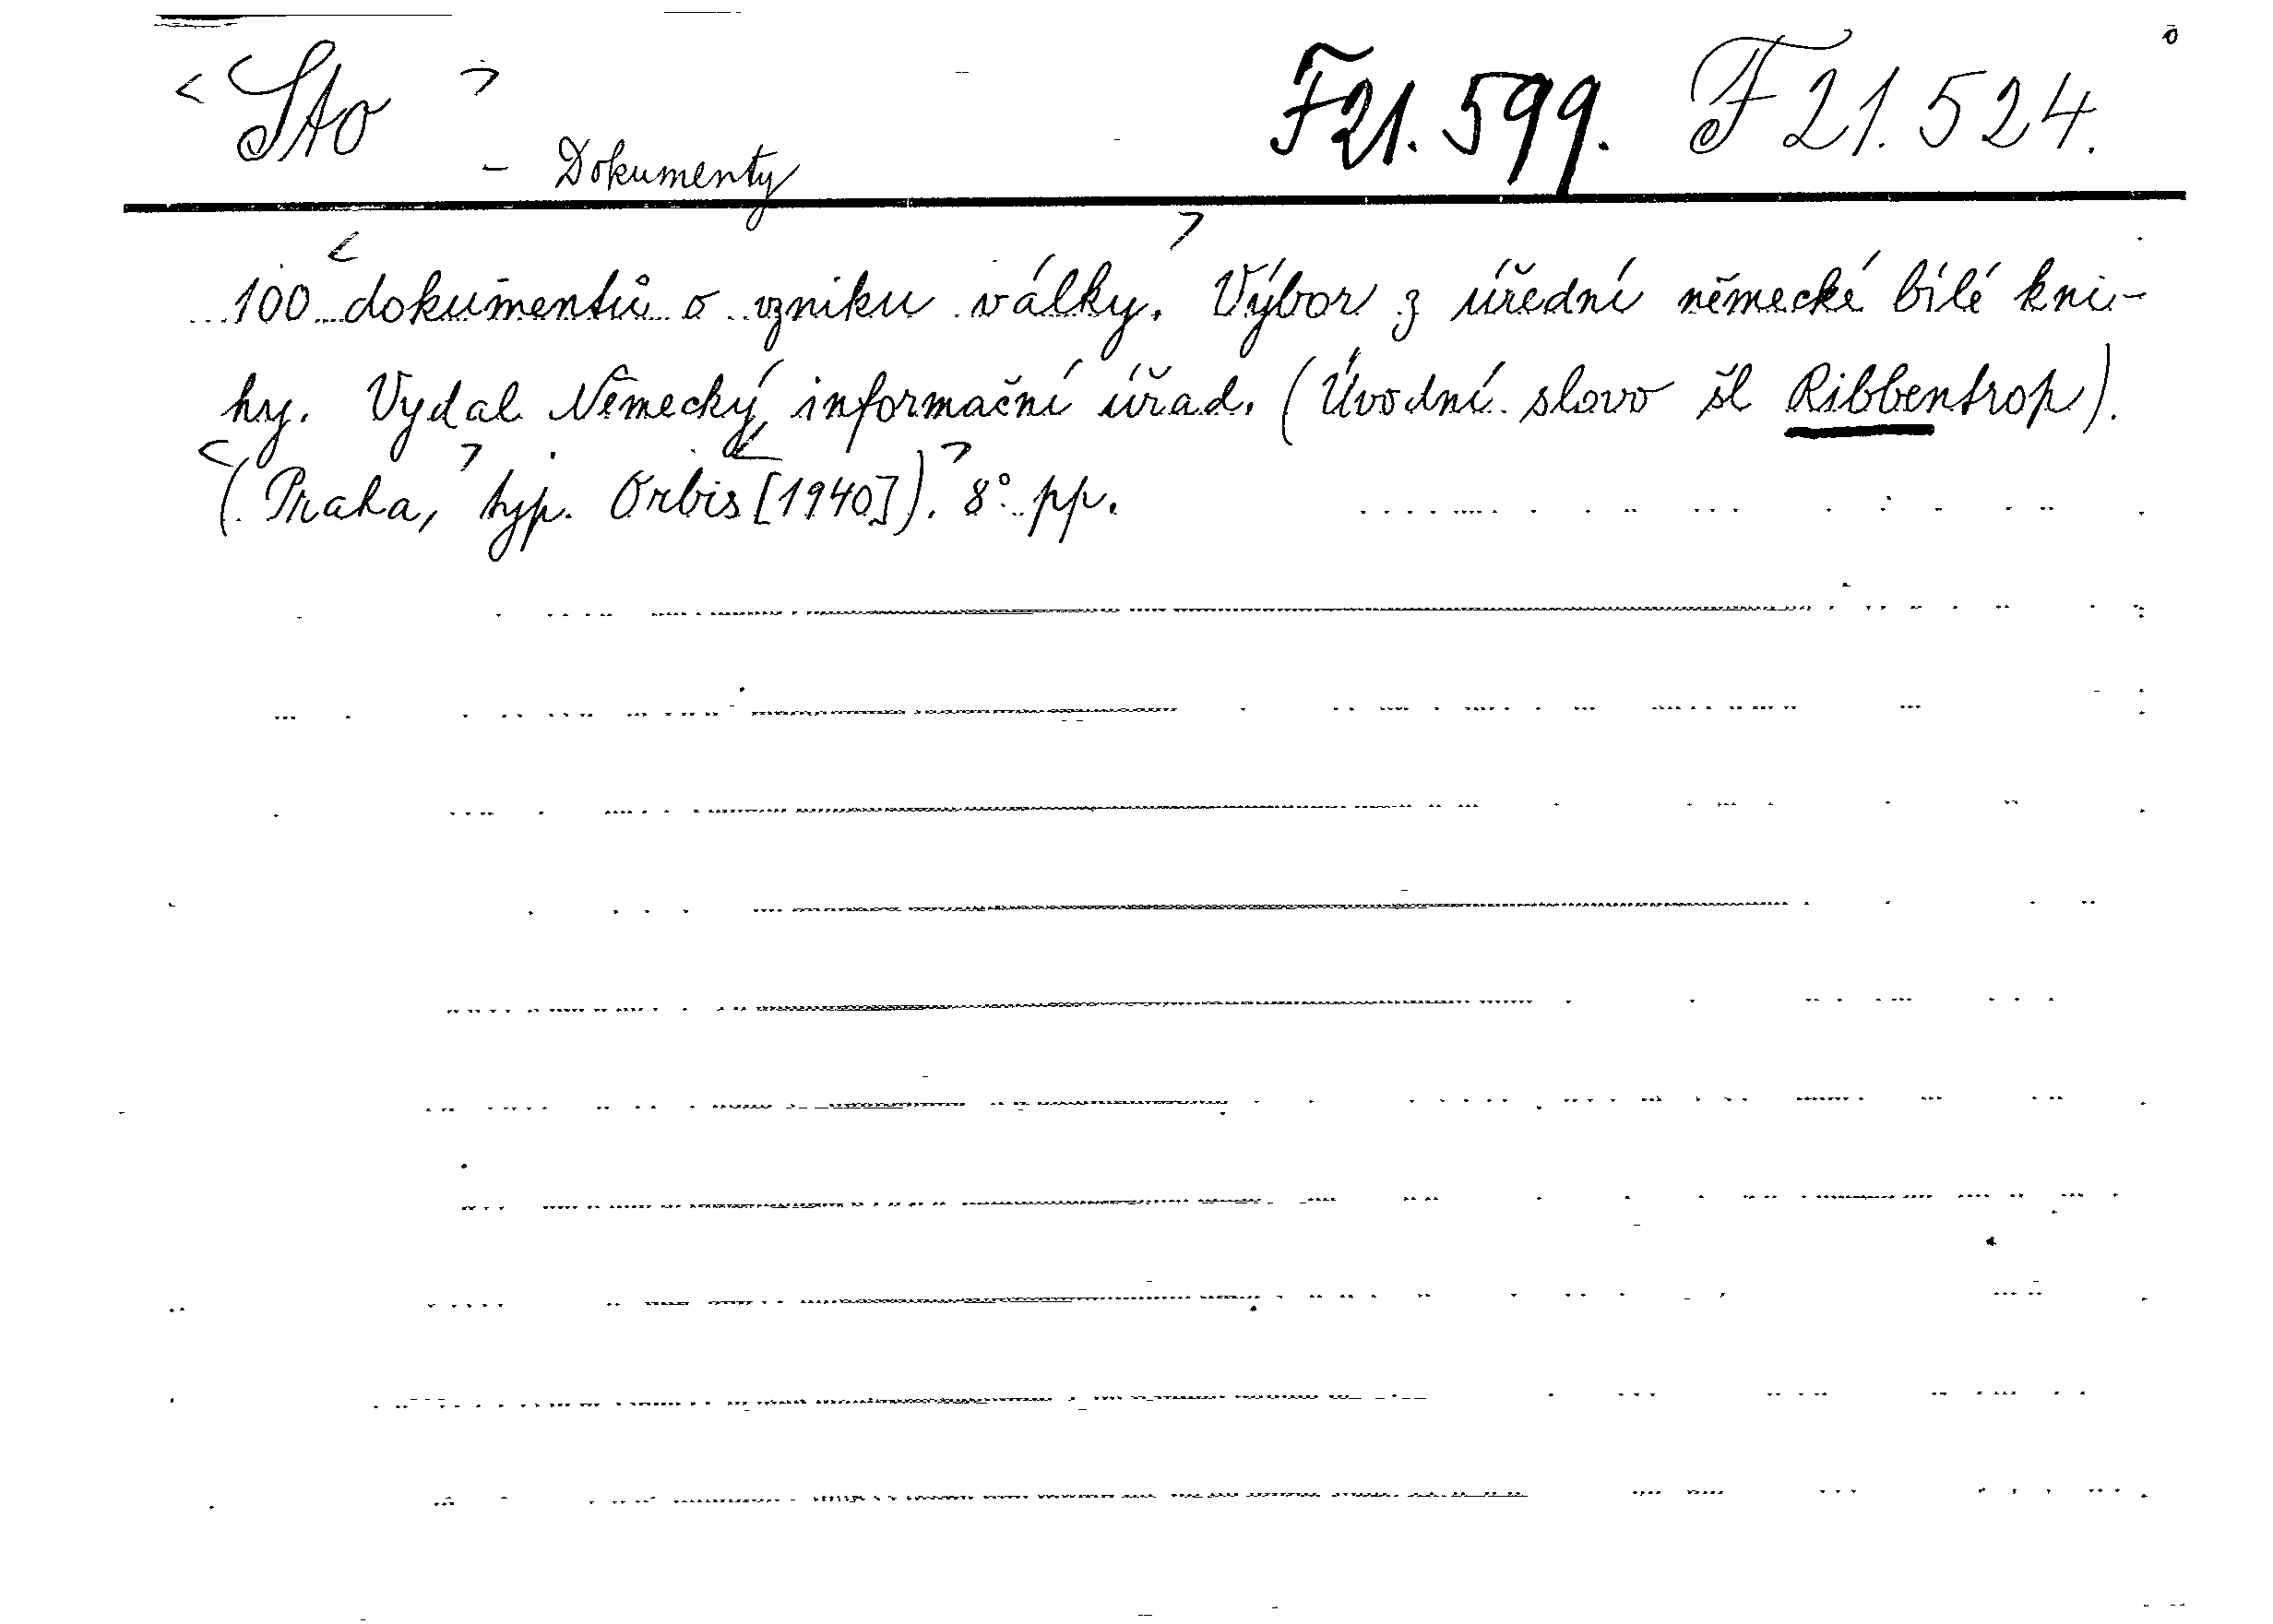 < Sto > - Dokumenty F 21.599. F 21.524.
100 < dokumentů o vzniku války. > Výbor z úřední německé bílé kni-
hy. Vydal Německý informační úřad. (Úvodní slovo šl Ribbentrop).
< (Praha, > typ. Orbis < [1940]). > 8° pp.